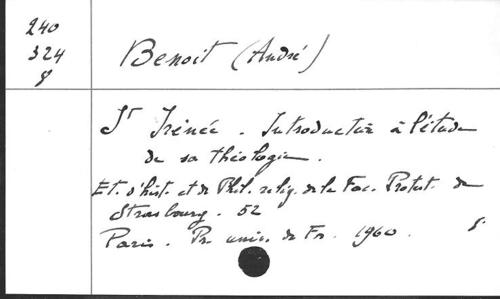 240
324
8
Benoit (André)
St Irénée. Introduction à l'étude
de sa théologie.
Et. d'hist. et de Phil. relig. de la Fac. Protest. de
Strasbourg. 52
Paris. Pr. univ. de Fr. 1960. 8